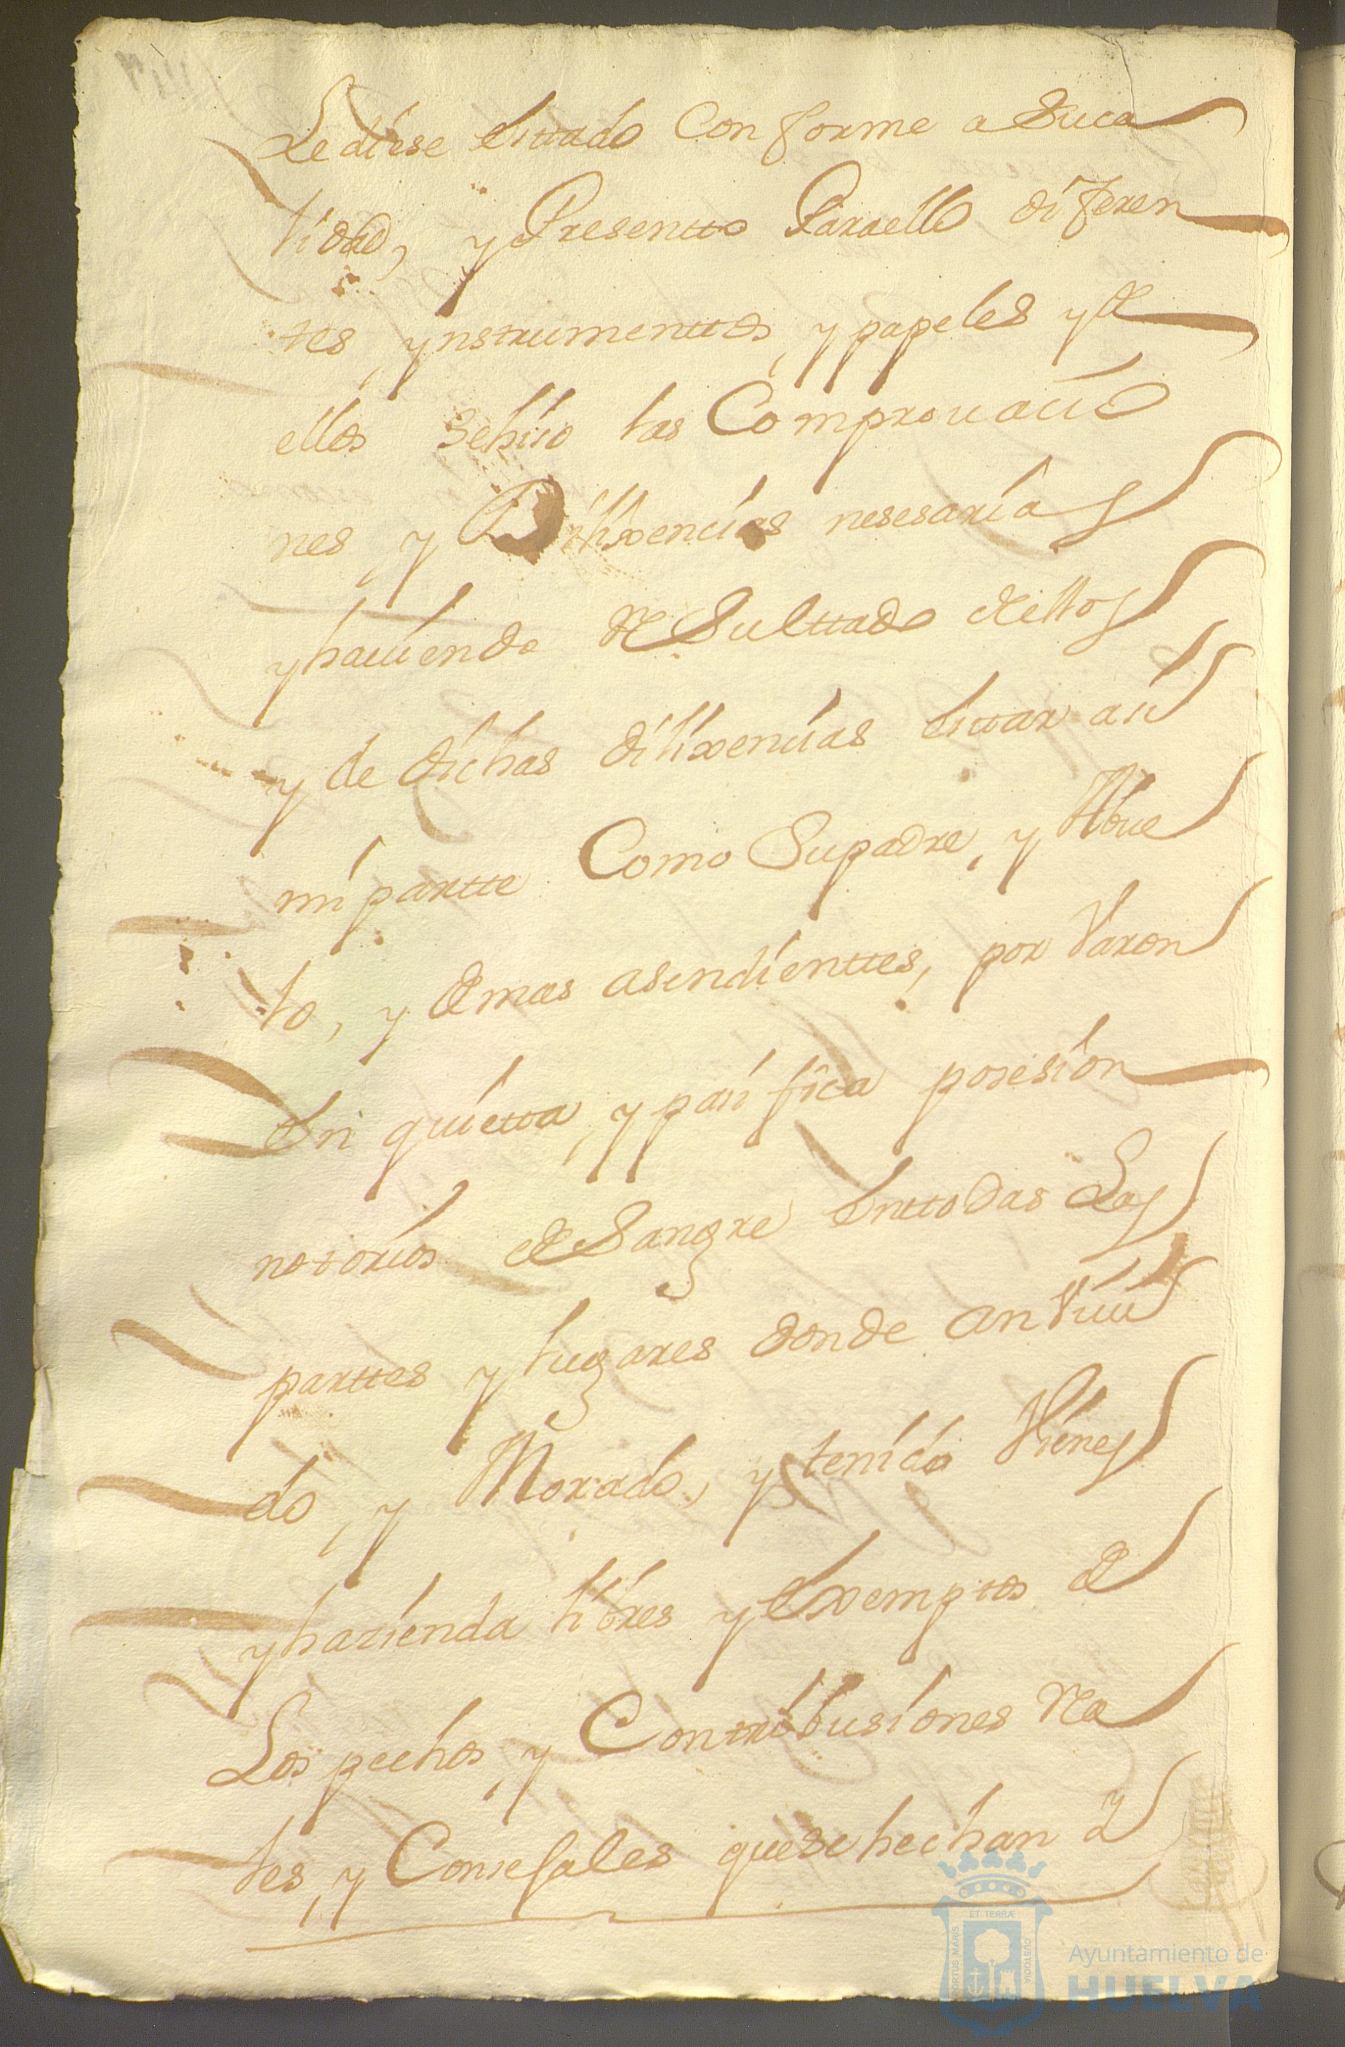 Le diese Esttado Conforme a Suca
lidad, y Presentto Paraello diferen
tes ynstrumenttos, y papeles y de
ellos Sehiso las Comprouacio
nes y Dilixencias nesesarias
y hauiendo reSulttado dellos
y de dichas dilixencias Esttar asi
mi partte Como Supadre, y Abue
lo, y demas asendienttes, por Varon
En quietta, y pasifica posesion
notorios de Sangre Enttodas Las
parttes y lugares donde an Viui
do, y Morado, y tenido Vienes
y hazienda libres y Exemptos de
Los pechos, y Contribusiones Rea
les, y Consejales que se hechan a
Ayuntamiento de
HUELVA